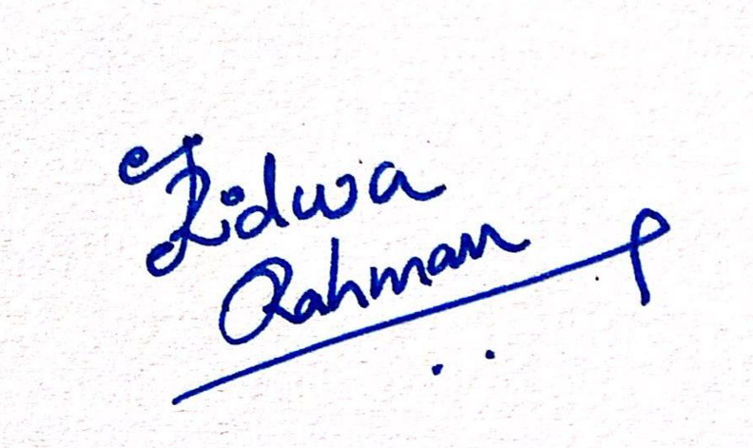 Ridwa
Rahman